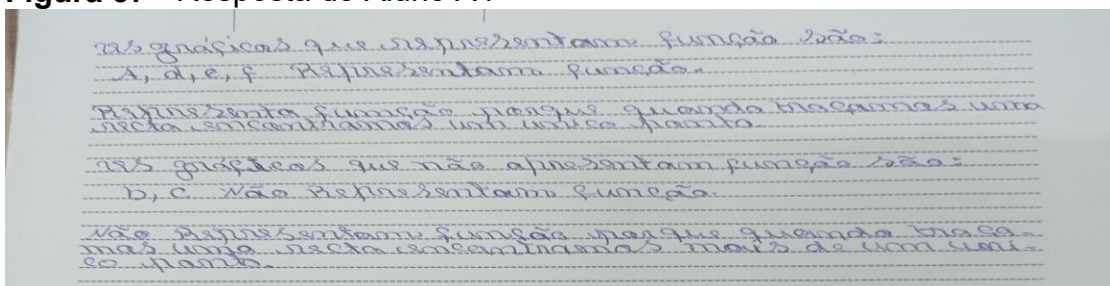 os gráficos que representam função são:
A, d, e, f Representam função.
Representa função porque quando traçamos uma
recta encontramos um unico ponto.
os gráficos que não apresentam função são:
b, c Não Representam função.
Não Representam função porque quando traça-
mos uma recta encontramos mais de um uni-
co ponto.